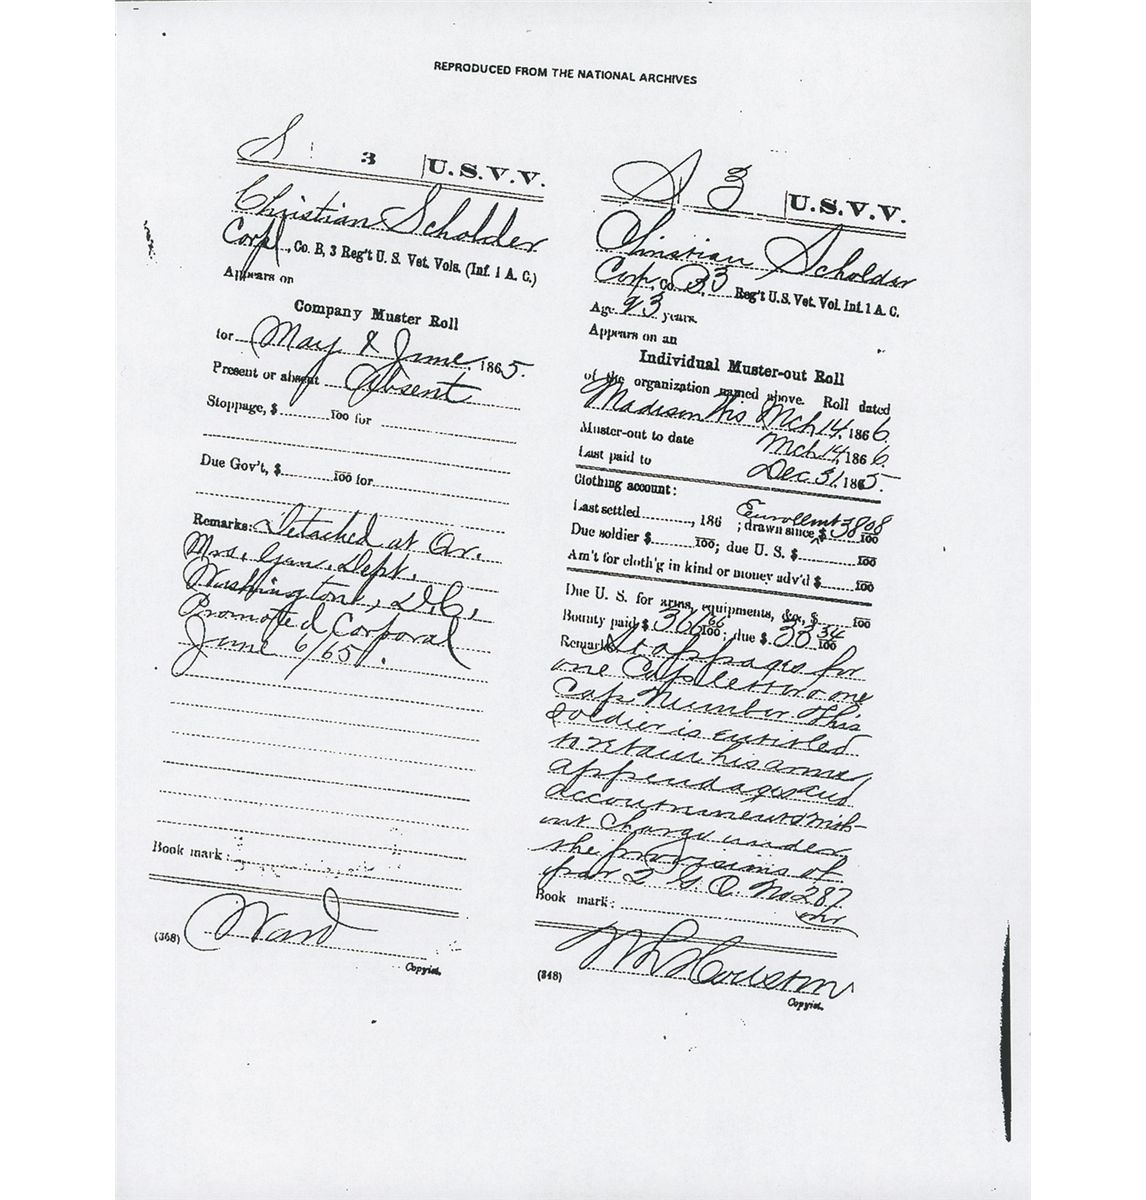 REPRODUCED FROM THE NATIONAL ARCHIVES
S 3 U.S.V.V.
Christian Scholder
Corpl, Co. B, 3 Reg't U. S. Vet. Vols. (Inf. 1 A. C.)
Appears on
Company Muster Roll
for May & June, 1865.
Present or absent Absent
Stoppage, $ 100 for
Due Gov't, $ 100 for
Remarks: Detached at Qr.
Mrs. Gen. Dept.
Washington, D.C.
Promoted Corporal
June 6/65.
Book mark:
Ward
(368)
Copyist.
S 3 U.S.V.V.
Christian Scholder
Corp, Co. B, 3 Reg't U.S. Vet. Vol. Inf. 1 A. C.
Age 23 years.
Appears on an
Individual Muster-out Roll
of the organization named above. Roll dated
Madison Wis Mch 14, 1866.
Muster-out to date Mch 14, 1866.
Last paid to Dec. 31, 1865.
Clothing account:
Last settled , 186 ; drawn since Enrollmt $ 38 08 100
Due soldier $ 100; due U. S. $ 100
Am't for cloth'g in kind or money adv'd $ 100
Due U. S. for arms, equipments, &c., $ 100
Bounty paid $ 366 66 100; due $ 33 34 100
Remarks: Stoppages for
one Caps letter one
Caps Number This
soldier is entitled
to retain his arms
appendages and
accoutrements with-
out charge under
the provisions of
par 2 G. O. No 287
Book mark:
W L Houston
(348)
Copyist.